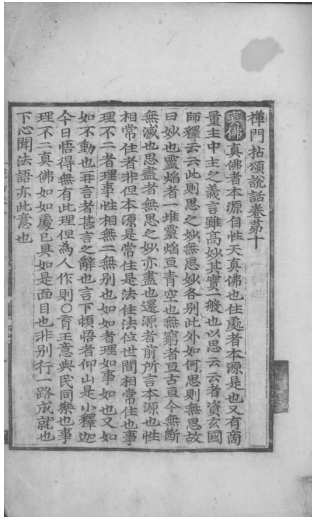 禪門拈頌說話卷第十
真佛真佛者本源自性天真佛也住處者本源是也又有箇
量主中主之義言雖高妙其實一般也以思云云者資玄國
師釋云云此則思之妙無思妙各別此外如何思則無思故
曰妙也靈焰者一堆靈焰亘青空也無窮者亘古亘今無斷
無滅也思盡者無思之妙亦盡也還源者前所言本源也性
相常住者非但本源是常住是法住法位世間相常住也事
理不二者理事性相無二無別也如如者理如事如也又如
如不動也再言者甚言之解也言下頓悟者仰山是小釋迦
今日悟得無有此理但為人作則○育王意與民同樂也事
理不二真佛如如處已真如是面目也非別行一路成就也
下心聞法語亦此意也